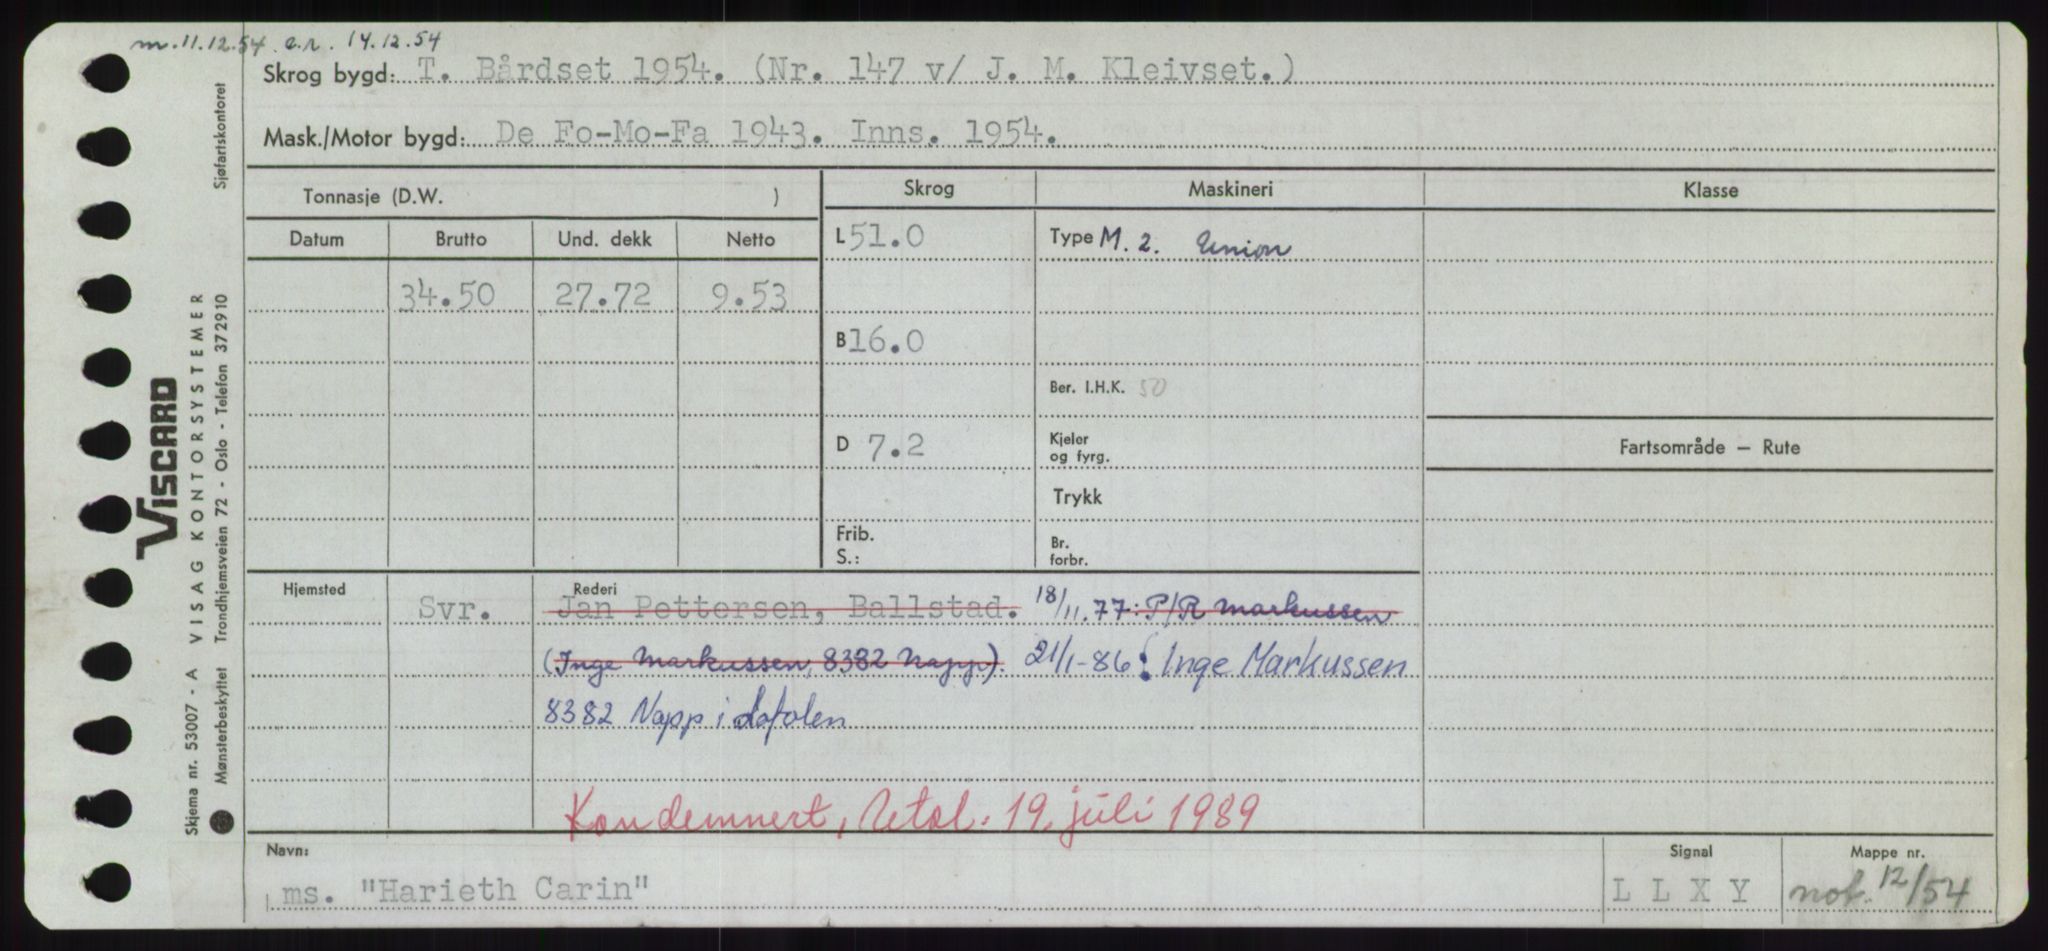 m. 11.12.54 e.r. 14.12.54
Skrog bygd: T. Bårdset 1954. (Nr. 147 v/ J. M. Kleivset.)
Mask./Motor bygd: De Fo-Mo-Fa 1943. Inns. 1954.
Tonnasje (D.W. )
Skrog Maskineri Klasse
Datum Brutto Und. dekk Netto
L 51.0 Type M. 2. Union
34.50 27.72 9.53
B 16.0
Ber. I.H.K. 50
D 7.2 Kjeler og fyrg.
Fartsområde — Rute
Trykk
Frib. S.:
Br. forbr.
Hjemsted Rederi
Svr. Jan Pettersen, Ballstad. 18/11.77: P/R Markussen
(Inge Markussen, 8382 Napp). 21/1-86: Inge Markussen
8382 Napp i Lofoten
Kondemnert, 19. juli 1989
Navn: Signal Mappe nr.
ms. "Harieth Carin" L L X Y not. 12/54
VISCARD
VISAG KONTORSYSTEMER
Skjema nr. 53007 - A
Mønsterbeskyttet Trondhjemsveien 72 - Oslo - Telefon 372910 Sjøfartskontoret